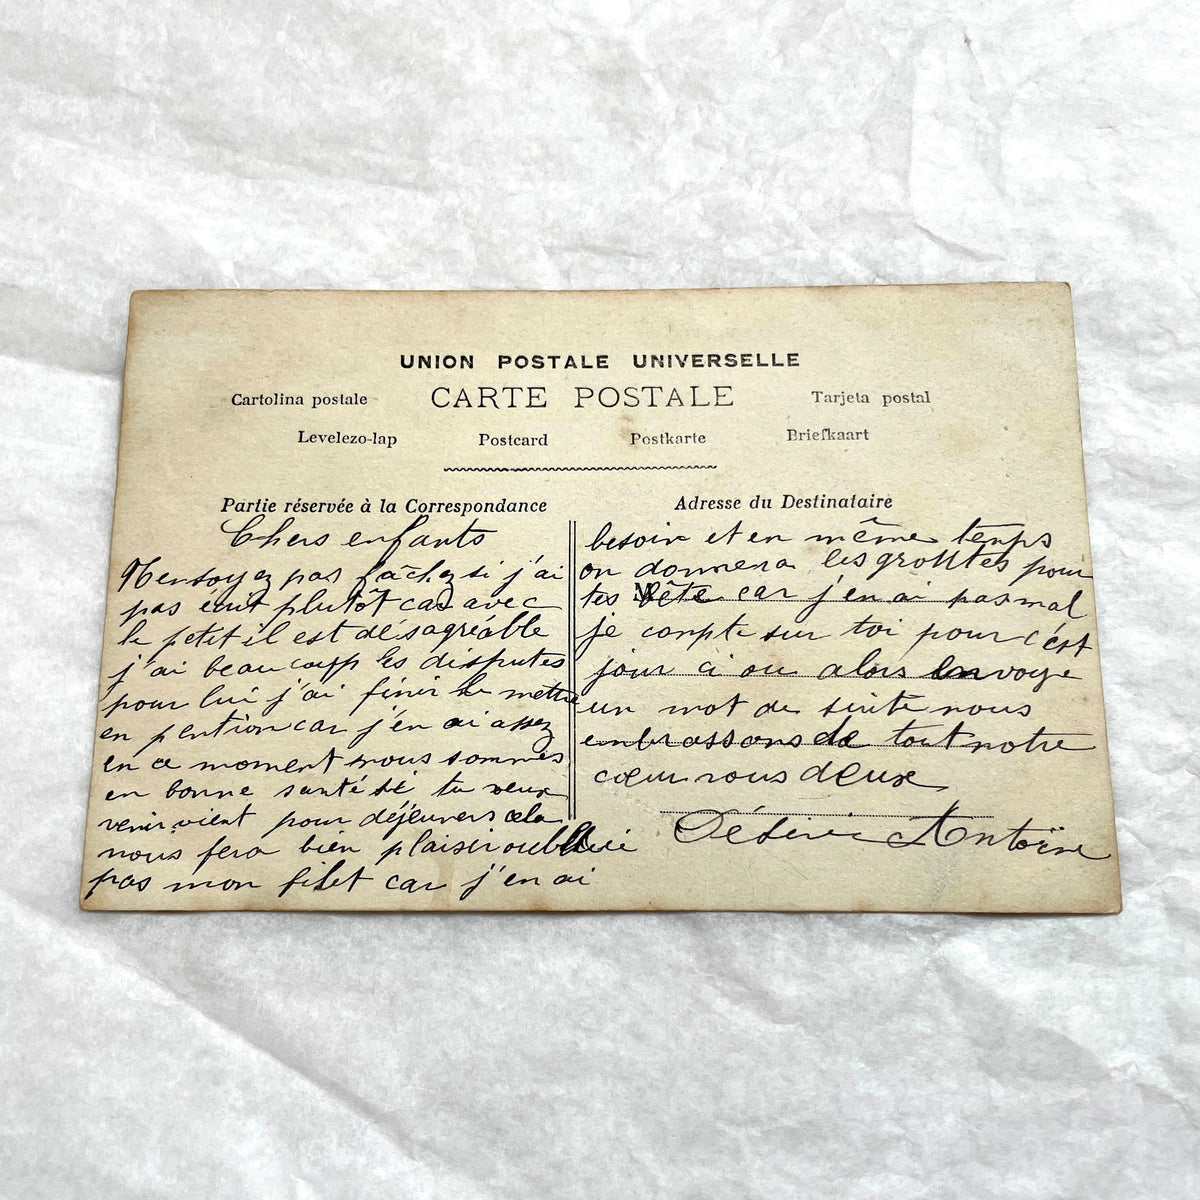 UNION POSTALE UNIVERSELLE
Cartolina postale CARTE POSTALE Tarjeta postal
Levelezo-lap Postcard Postkarte Briefkaart
Partie réservée à la Correspondance
Chers enfants
Ne soyez pas fâchez si j'ai
pas écrit plutôt car avec
le petit il est désagréable
j'ai beaucoup les disputes
pour lui j'ai finir le mettre
en pention car j'en ai assez
en ce moment nous sommes
en bonne santé si tu veux
venir vient pour déjeuners cela
nous fera bien plaisir oublie
pas mon filet car j'en ai
Adresse du Destinataire
besoin et en même temps
on donnera les grouttes pour
tes car j'en ai pas mal
je compte sur toi pour c'est
jour ci ou alors envoye
un mot de suite nous
embrassons de tout notre
cœur vous deux
Désirée Antoine